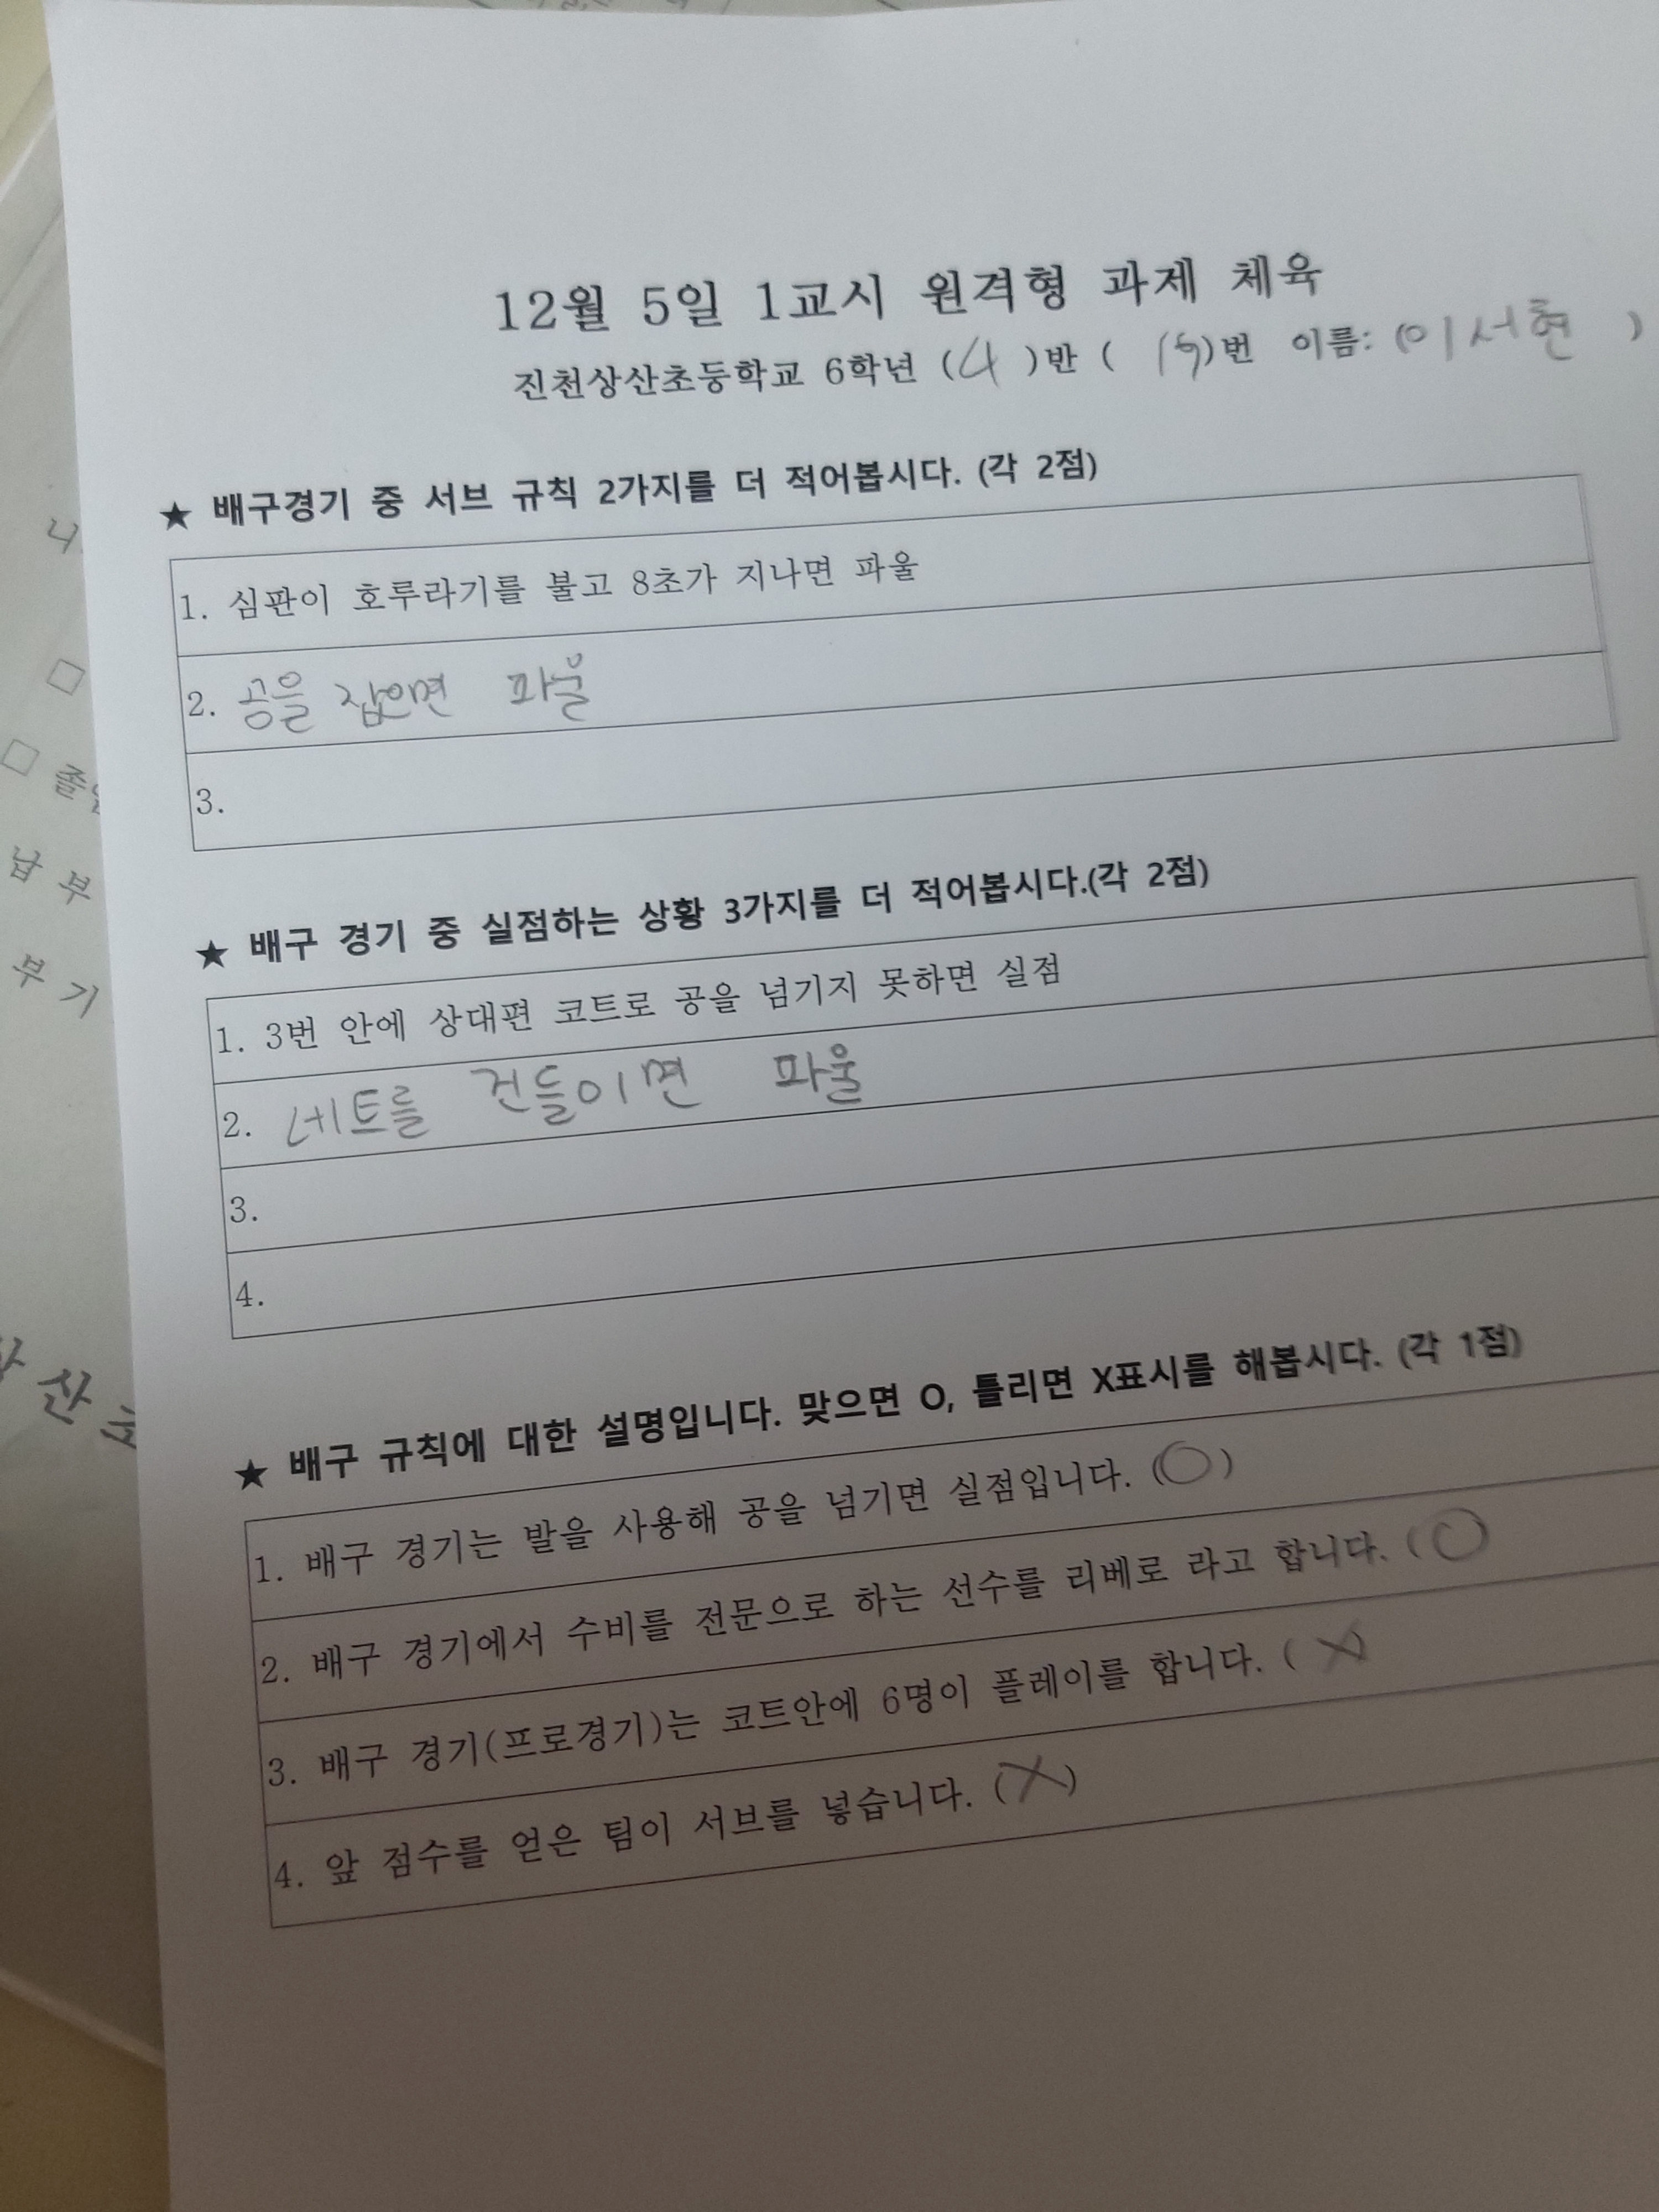 12월 5일 1교시 원격형 과제 체육
진천상산초등학교 6학년 (4)반 ( 19)번 이름: (이서현 )
★ 배구경기 중 서브 규칙 2가지를 더 적어봅시다. (각 2점)
1. 심판이 호루라기를 불고 8초가 지나면 파울
2. 공을 잡으면 파울
3.
★ 배구 경기 중 실점하는 상황 3가지를 더 적어봅시다.(각 2점)
1. 3번 안에 상대편 코트로 공을 넘기지 못하면 실점
2. 네트를 건들이면 파울
3.
4.
★ 배구 규칙에 대한 설명입니다. 맞으면 O, 틀리면 X표시를 해봅시다. (각 1점)
1. 배구 경기는 발을 사용해 공을 넘기면 실점입니다. (O)
2. 배구 경기에서 수비를 전문으로 하는 선수를 리베로 라고 합니다. (O
3. 배구 경기(프로경기)는 코트안에 6명이 플레이를 합니다. ( X)
4. 앞 점수를 얻은 팀이 서브를 넣습니다. (X)
납부
부기
산